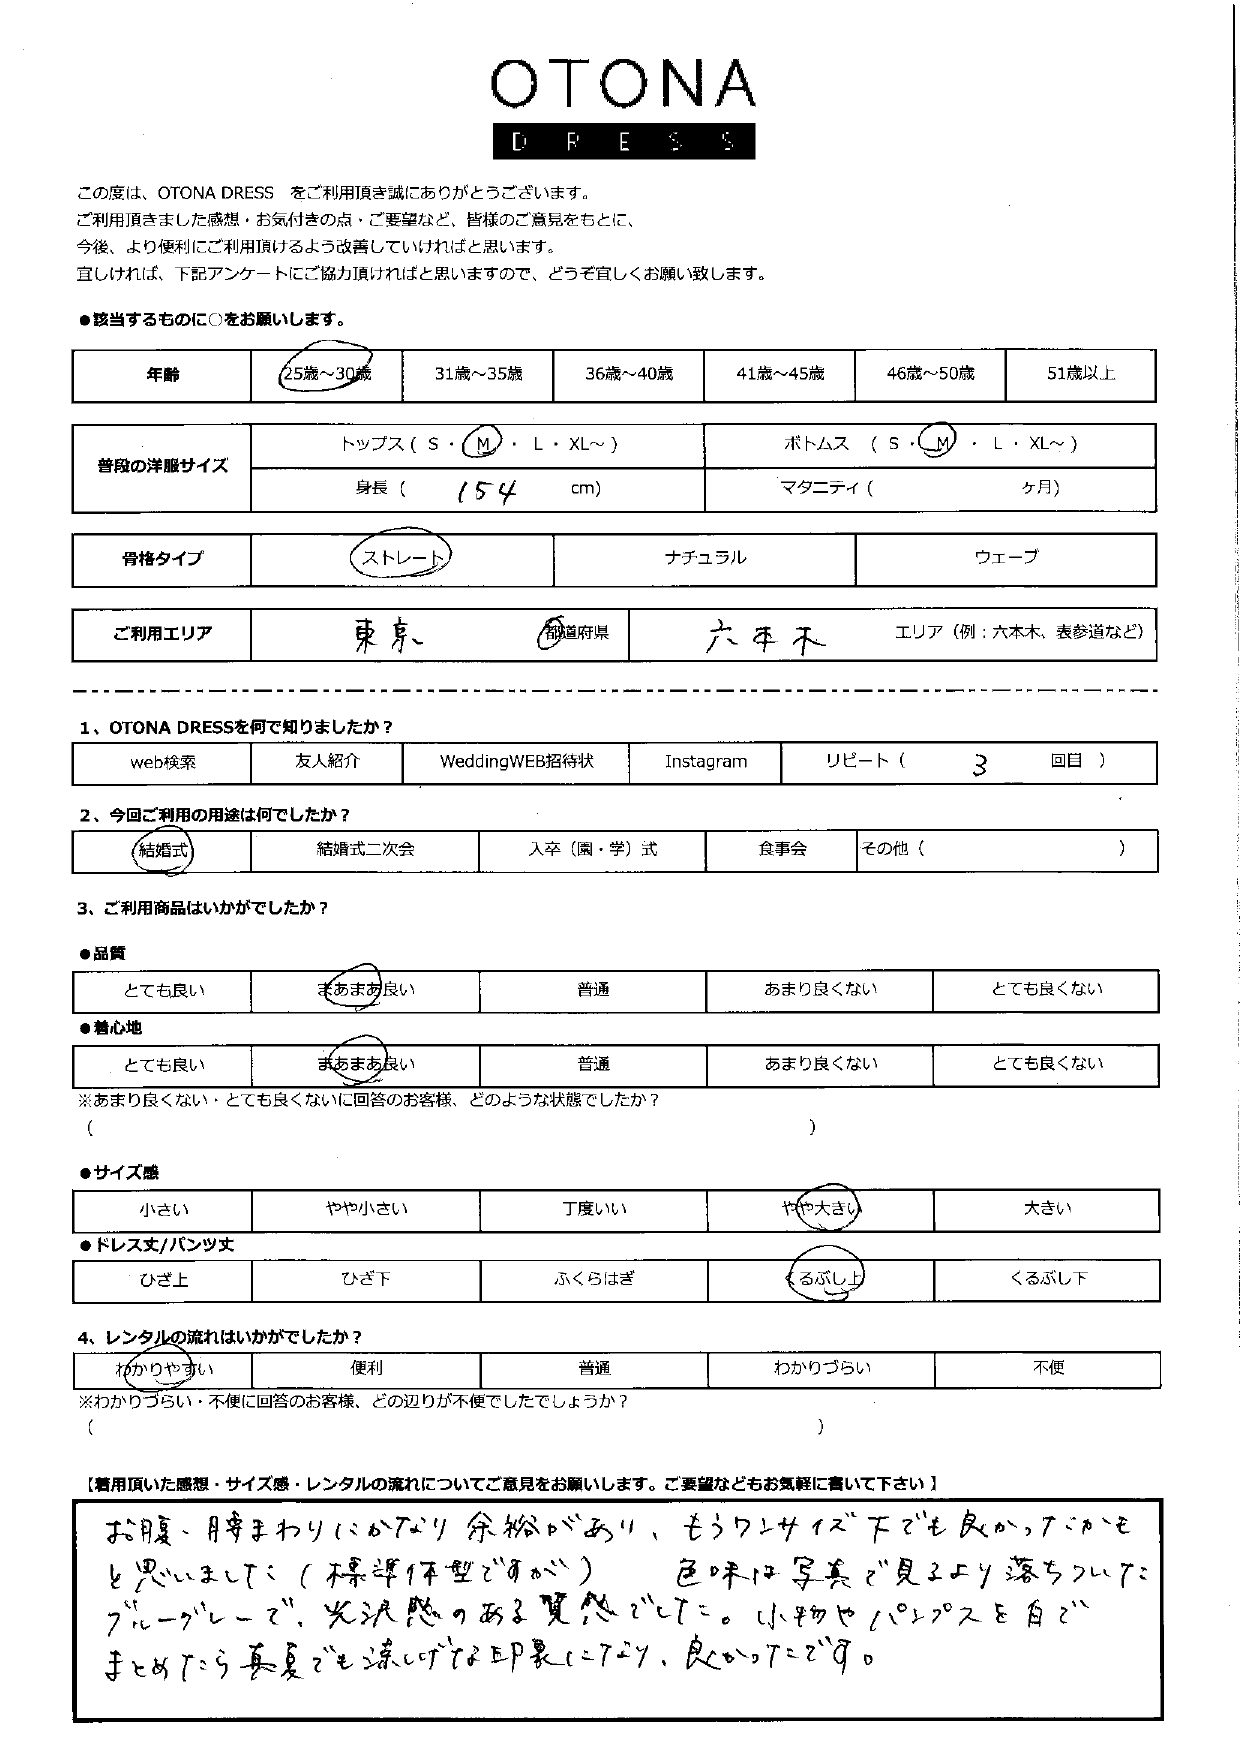 OTONA
DRESS
この度は、OTONA DRESS をご利用頂き誠にありがとうございます。
ご利用頂きました感想・お気付きの点・ご要望など、皆様のご意見をもとに、
今後、より便利にご利用頂けるよう改善していければと思います。
宜しければ、下記アンケートにご協力頂ければと思いますので、どうぞ宜しくお願い致します。
●該当するものに○をお願いします。
年齢 25歳～30歳 31歳～35歳 36歳～40歳 41歳～45歳 46歳～50歳 51歳以上
普段の洋服サイズ トップス ( S ・ M ・ L ・ XL～ ) ボトムス ( S ・ M ・ L ・ XL～ )
身長 ( 154 cm) マタニティ ( ヶ月)
骨格タイプ ストレート ナチュラル ウェーブ
ご利用エリア 東京 都道府県 六本木 エリア（例：六本木、表参道など）
1、OTONA DRESSを何で知りましたか？
web検索 友人紹介 WeddingWEB招待状 Instagram リピート ( 3 回目 )
2、今回ご利用の用途は何でしたか？
結婚式 結婚式二次会 入卒（園・学）式 食事会 その他 ( )
3、ご利用商品はいかがでしたか？
●品質
とても良い まあまあ良い 普通 あまり良くない とても良くない
●着心地
とても良い まあまあ良い 普通 あまり良くない とても良くない
※あまり良くない・とても良くないに回答のお客様、どのような状態でしたか？
( )
●サイズ感
小さい やや小さい 丁度いい やや大きい 大きい
●ドレス丈/パンツ丈
ひざ上 ひざ下 ふくらはぎ くるぶし上 くるぶし下
4、レンタルの流れはいかがでしたか？
わかりやすい 便利 普通 わかりづらい 不便
※わかりづらい・不便に回答のお客様、どの辺りが不便でしたでしょうか？
( )
【着用頂いた感想・サイズ感・レンタルの流れについてご意見をお願いします。ご要望などもお気軽に書いて下さい 】
お腹、腰まわりにかなり余裕があり、もうワンサイズ下でも良かったかも
と思いました(標準体型ですが) 色味は写真で見るより落ちついた
ブルーグレーで、光沢感のある質感でした。小物やパンプスを白で
まとめたら真夏でも涼しげな印象になり、良かったです。